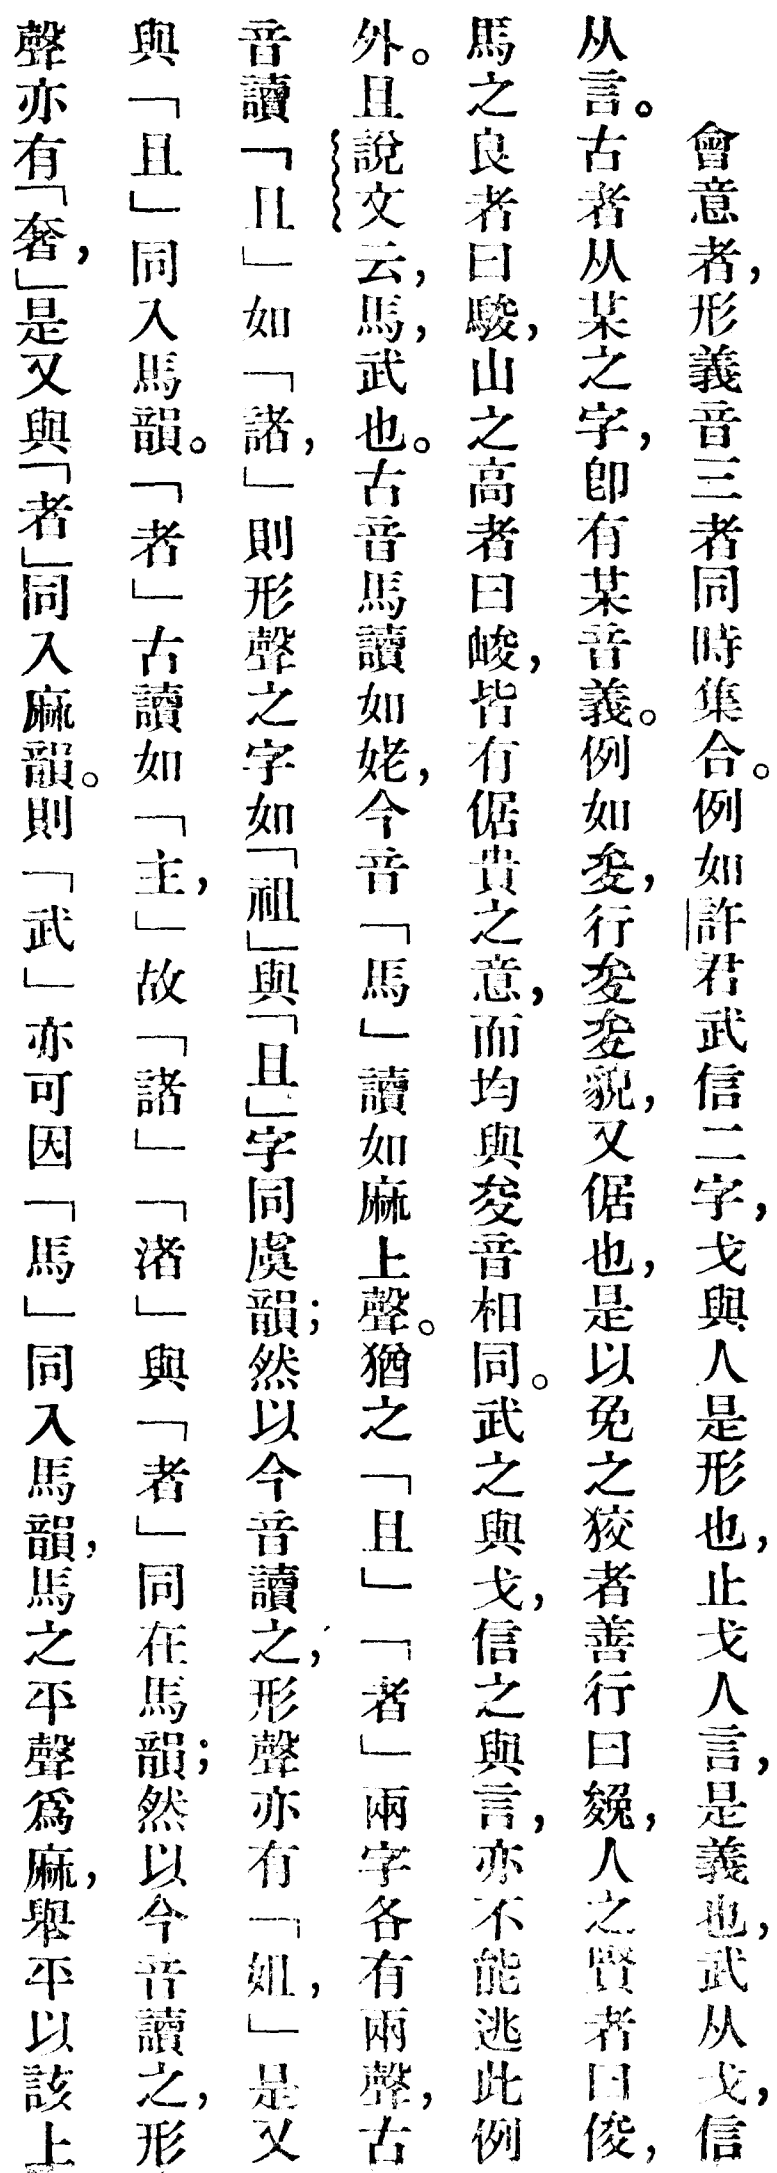 會意者，形義音三者同時集合。例如許君武信二字，戈與人是形也，止戈人言，是義也，武从戈，信
从言。古者从某之字，卽有某音義。例如夋，行夋夋貌，又倨也，是以兔之狡者善行曰㕙，人之賢者曰俊，
馬之良者曰駿，山之高者曰峻，皆有倨貴之意，而均與夋音相同。武之與戈，信之與言，亦不能逃此例
外。且說文云，馬，武也。古音馬讀如姥，今音「馬」讀如麻上聲。猶之「且」「者」兩字各有兩聲，古
音讀「且」如「諸，」則形聲之字如「祖」與「且」字同虞韻；然以今音讀之，形聲亦有「姐，」是又
與「且」同入馬韻。「者」古讀如「主，」故「諸」「渚」與「者」同在馬韻；然以今音讀之，形
聲亦有「奢，」是又與「者」同入麻韻。則「武」亦可因「馬」同入馬韻，馬之平聲爲麻，舉平以該上